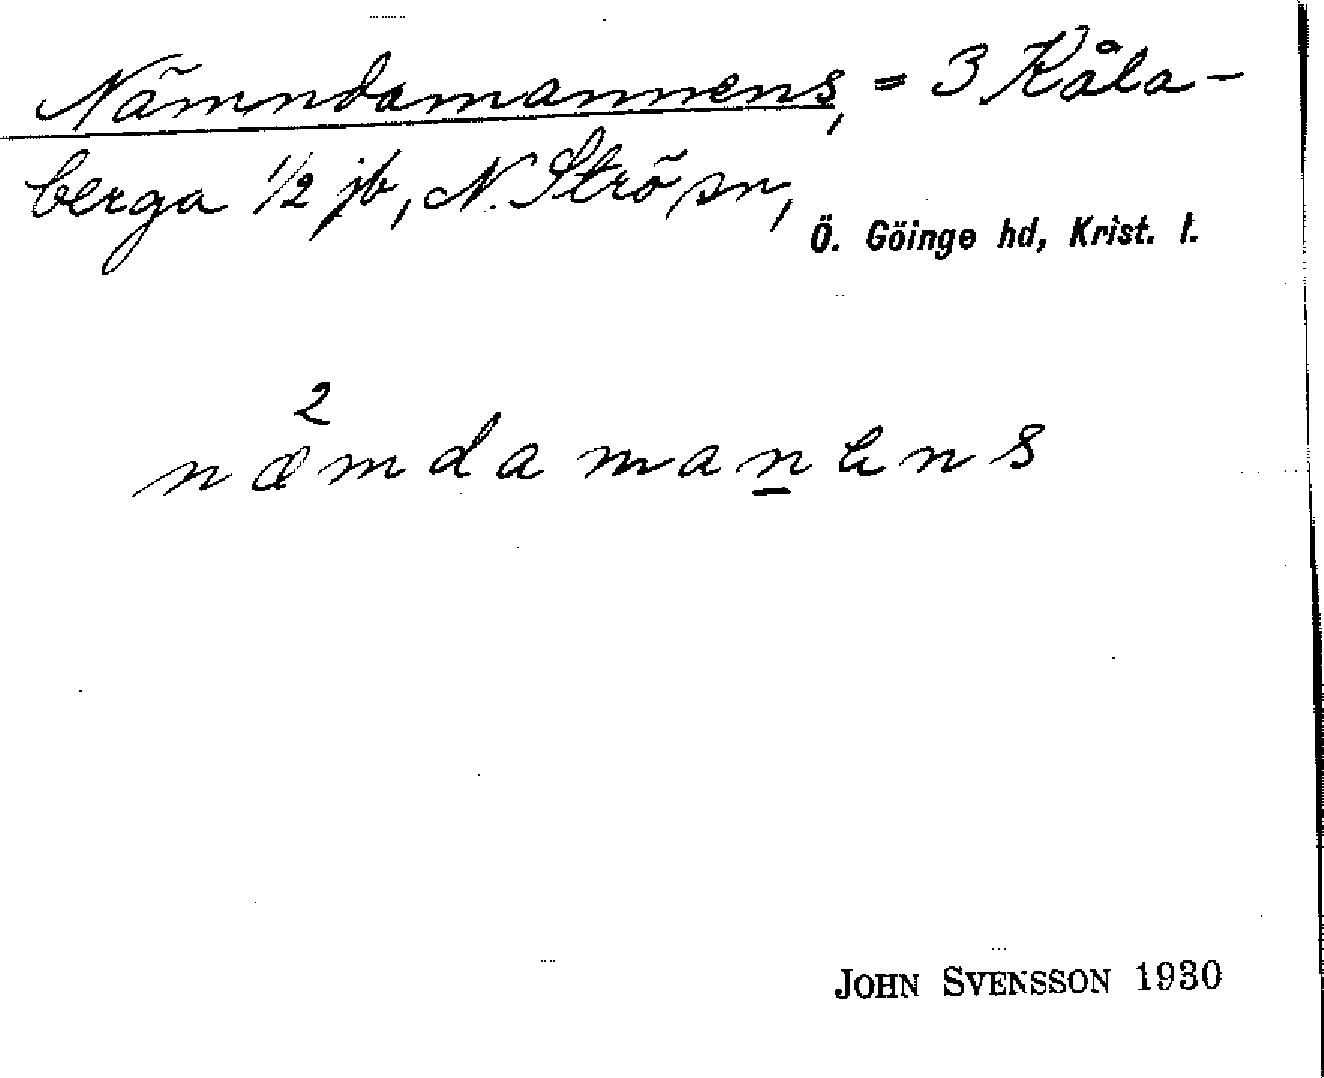 Nämndamannens, = 3 Kåla-
berga 1/2 jb, N. Strö sn,
Ö. Göinge hd, Krist. l.
2
næmdamanens
JOHN SVENSSON 1930